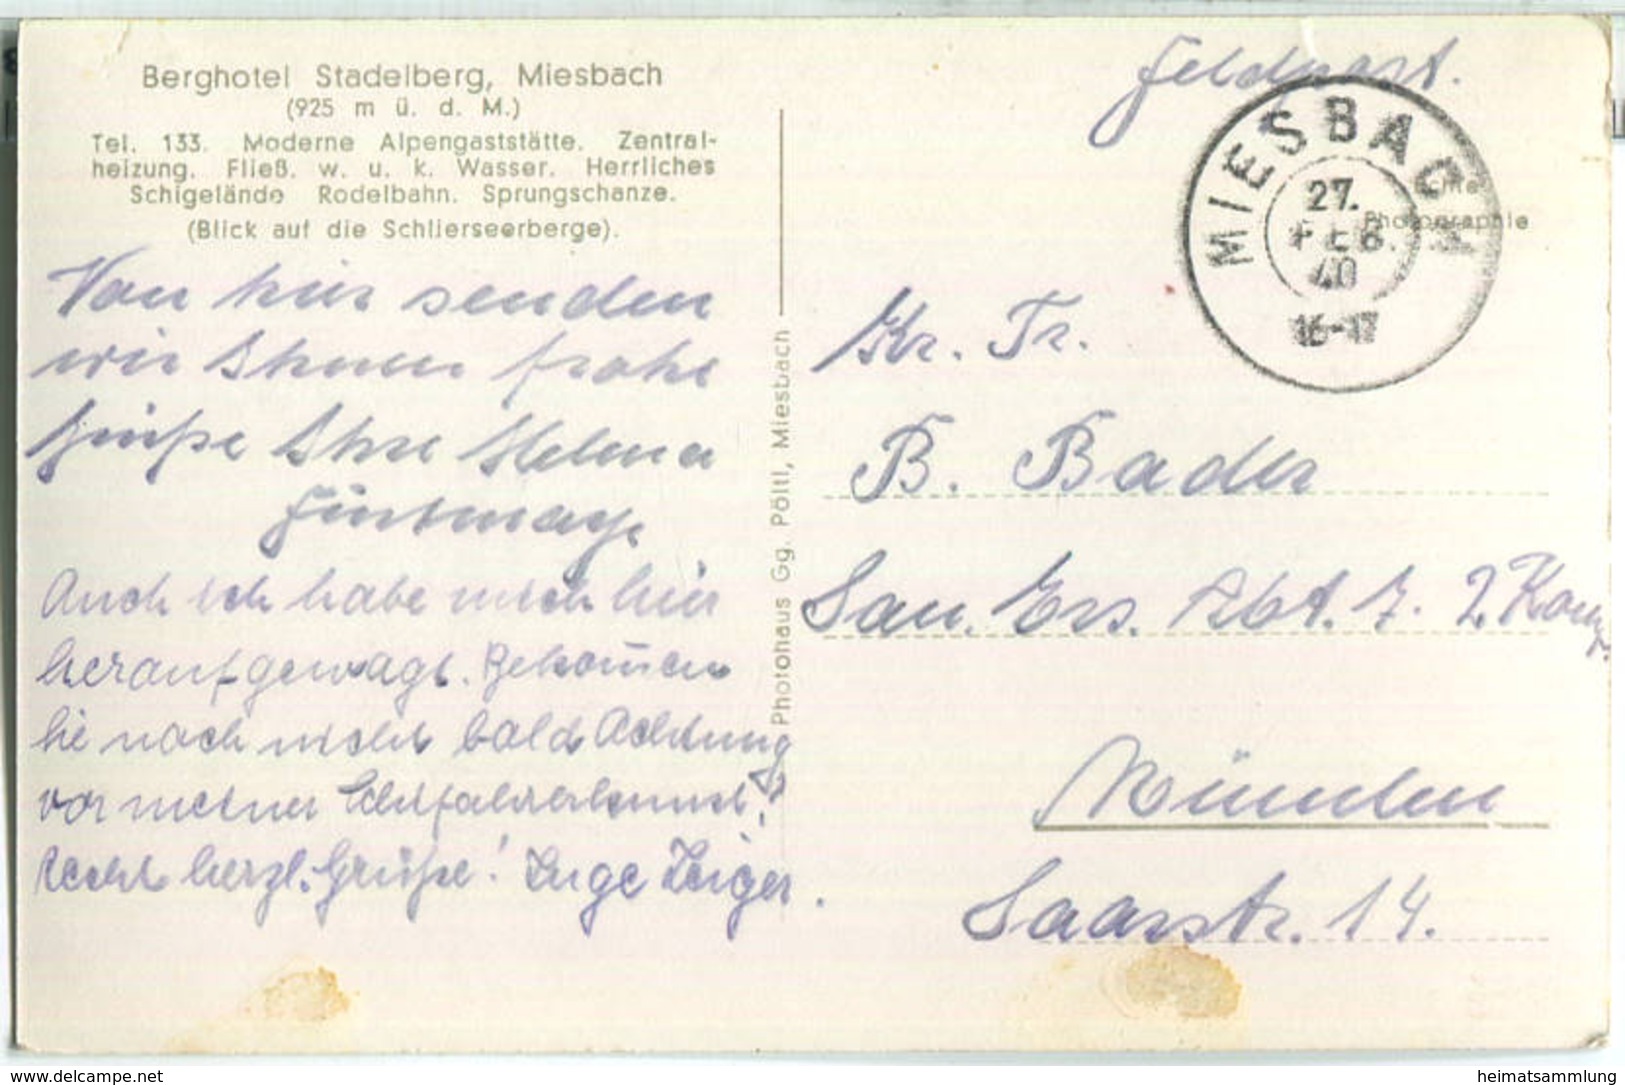 Berghotel Stadelberg, Miesbach
(925 m ü. d. M.)
Tel. 133. Moderne Alpengaststätte. Zentral-
heizung. Fließ. w. u. k. Wasser. Herrliches
Schigelände Rodelbahn. Sprungschanze.
(Blick auf die Schlierseerberge).
Von hier senden
wir Ihnen frohe
Grüße Ihre Helma
Auch ich habe mich hier
heraufgewagt. Bekommen
Sie noch nicht bald Achtung
vor meiner
Recht herzl. Grüße! Inge Zeiger.
Photohaus Gg. Pöltl, Miesbach
Feldpost.
MIESBACH
27.
FEB.
40
16-17
Photographie
Kr. Tr.
B. Bader
San. Ers. Abt. 7. 2. Komp.
München
Saarstr. 14.
www.delcampe.net
heimatsammlung